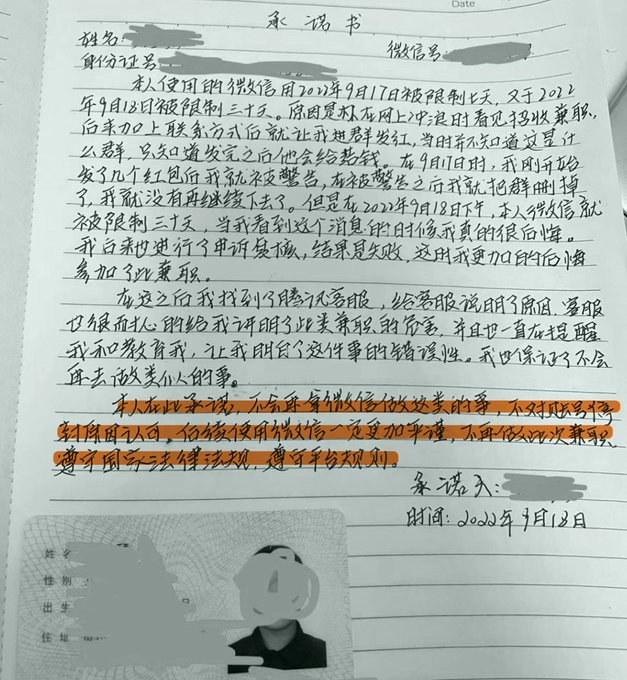 Date
承诺书
姓名:
微信号
身份证号
本人使用的微信用2022年9月17日被限制七天，又于2022
年9月18日被限制三十天。原因是我在网上冲浪时看见招收兼职，
后来加上联系方式后就让我进群发红，当时并不知道这是什
么群，只知道发完之后他会给些钱。在9月17日时，我刚开始
发了几个红包后我就被警告，在被警告之后我就把群删掉
了，我就没有再继续下去了。但是在2022年9月18日下午，本人微信就
被限制三十天，当我看到这个消息的时候我真的很后悔。
我后来也进行了申诉复核，结果是失败，这时我更加的后悔
参加了此兼职。
在这之后我找到了腾讯客服，给客服说明了原因，客服
也很耐心的给我讲明了此类兼职的危害，并且也一直在提醒
我和教育我，让我明白了这件事的错误性。我也保证了不会
再去做类似的事。
本人在此承诺，不会再拿微信做这类的事，不对账号停
封原因认可，后续使用微信一定更加严谨，不再做此次兼职，
遵守国家法律法规，遵守平台规则。
承诺人:
时间: 2022年9月18日
姓名
性别
出生
住址